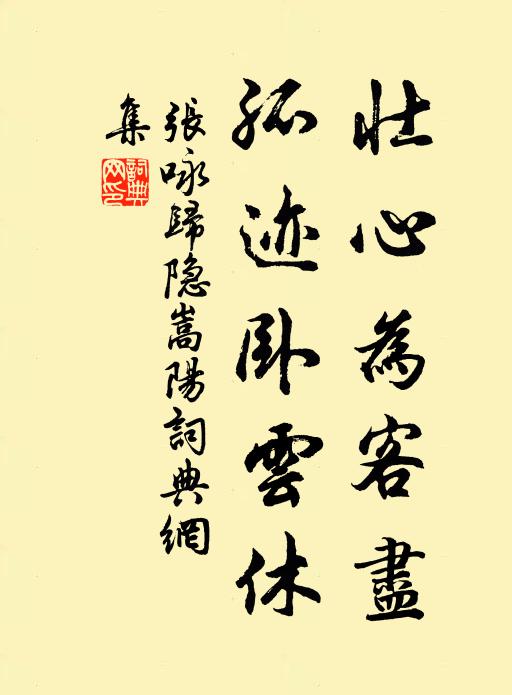 壮心為客盡
孤迹卧雲休
張咏歸隐嵩陽詞典網
集
詞典
网印